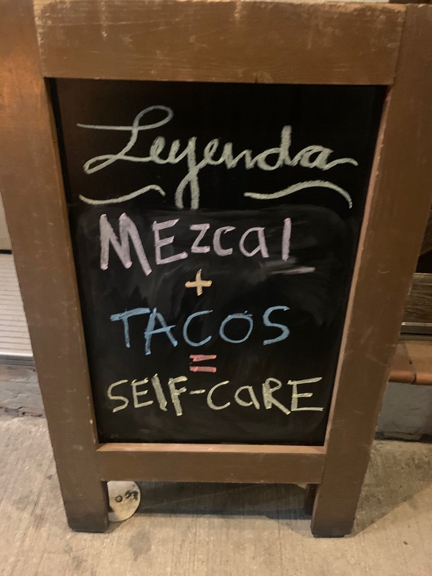 Leyenda
MEzcal
+
TACOS
=
SElF-CaRE